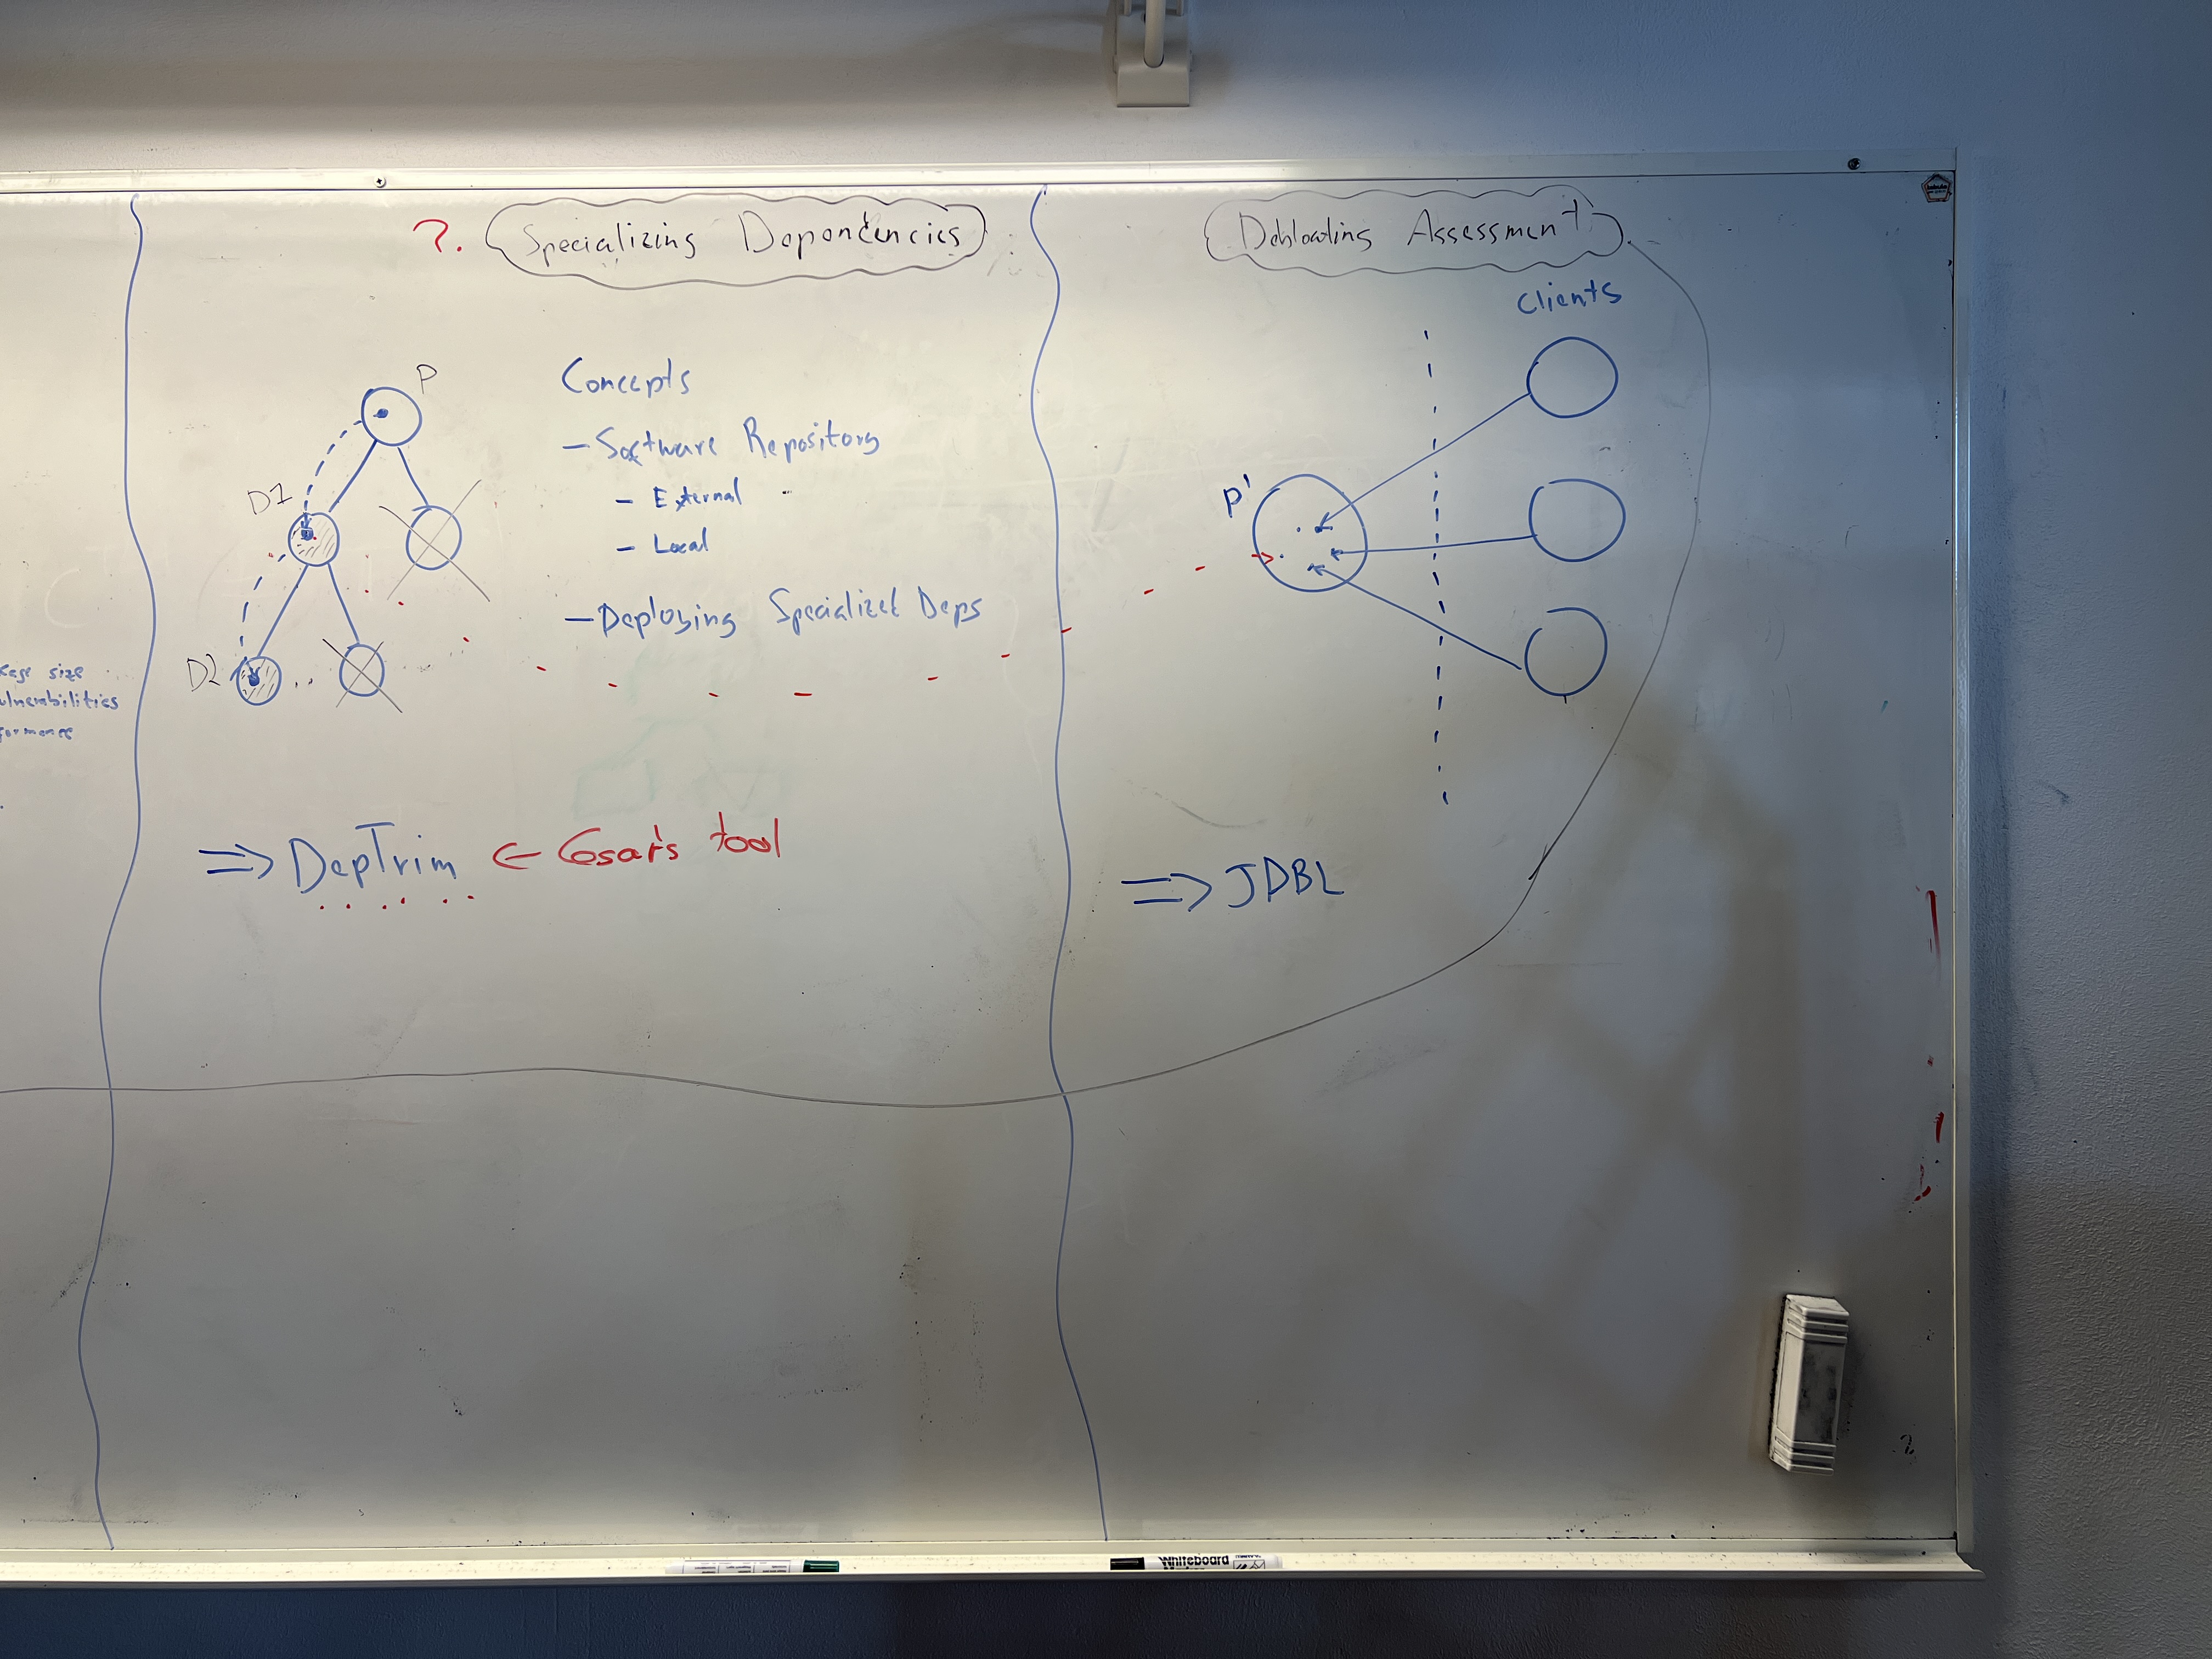 ?. Specializing Dependencies
P
D1
D2
Concepts
- Software Repository
- External
- Local
- Deploying Specialized Deps
=> DepTrim <- Cesar's tool
Debloating Assessment
Clients
P'
=> JDBL
size
Whiteboard